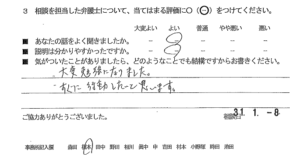 3 相談を担当した弁護士について、当てはまる評価に○(○)をつけてください。
大変よい よい 普通 やや悪い 悪い
■ あなたの話をよく聞きましたか。
■ 説明は分かりやすかったですか。
■ 気がついたことがありましたら、どのようなことでも結構ですからお書きください。
大変勉強になりました。
すぐに行動したいと思います。
ご協力ありがとうございました。
相談日 31.1.-8
事務局記入欄